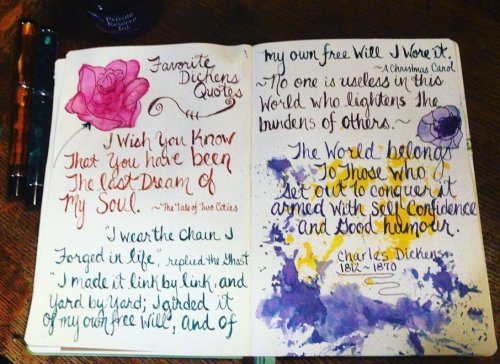 Private
Reserve
Ink
Favorite
Dickens
Quotes
I Wish You Know
That You have been
The last Dream of
My Soul. ~The Tale of Two Cities
"I wear the Chain I
Forged in life", replied the Ghost
"I made it link by link, and
Yard by Yard; I girded it
of my own free Will, and of
my own free Will I Wore it.
~A Christmas Carol
~No one is useless in this
World who lightens The
burdens of Others.~
The World belongs
To Those who
Set out To Conquer it
armed With Self Confidence
and Good humour.
Charles Dickens
1812~1870